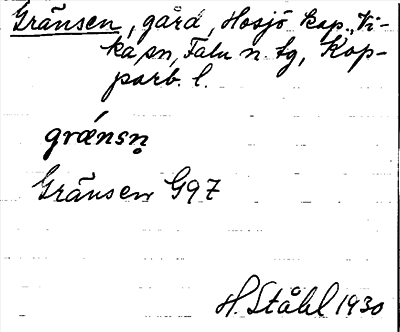 Gränsen, gård, Hosjö kap., Vi-
ka sn, Falu n. tg, Kop-
parb. l.
grǽnsn̥
Gränsen G97
H. Ståhl 1930